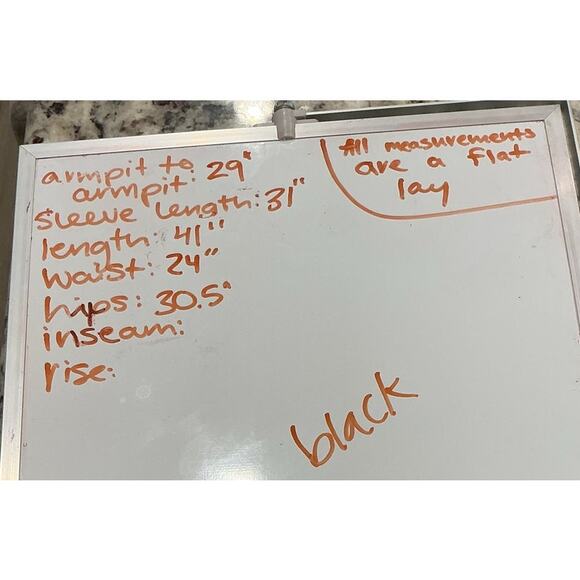 armpit to
armpit: 29"
sleeve length: 31"
length: 41"
waist: 24"
hips: 30.5"
inseam:
rise:
All measurements
are a flat
lay
black